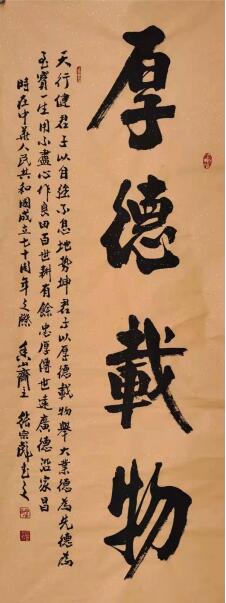 厚德載物
天行健君子以自強不息地勢坤君子以厚德載物舉大業德為先德為
至寶一生用不盡心作良田百世耕有餘忠厚傳世遠廣德澤家昌
時在中華人民共和國成立七十周年之際